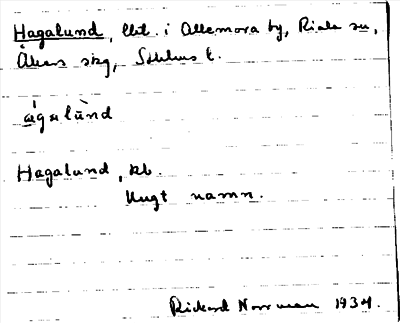 Hagalund, lht. i Allemora by, Riala sn,
Åkers skg, Sthlms l.
ágɐlùnd
Hagalund, kb.
Ungt namn.
Rickard Norrman 1934.